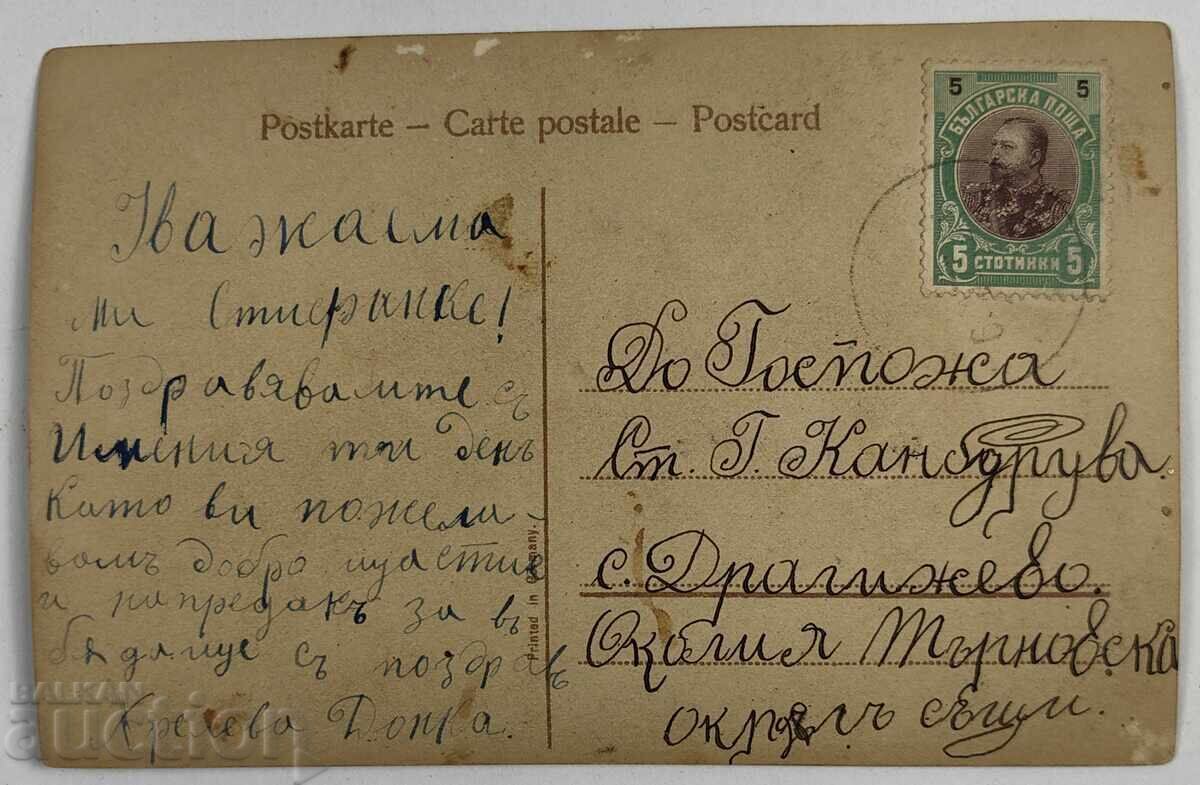 Postkarte — Carte postale — Postcard
5 5
БЪЛГАРСКА ПОЩА
5 СТОТИНКИ 5
Уважаема
ми Стиефанке!
Поздравявамте съ
Имения ти День
като ви пожела-
вамъ добро щастие
и напредакъ за въ
бѫдяще съ поздравъ
Крелева Донка.
Printed in Germany.
До Госпожа
Ст. Г. Кандрува.
с. Драгижево.
Околия Търновска
окрѫгъ сѫщи.
BALKAN
auction